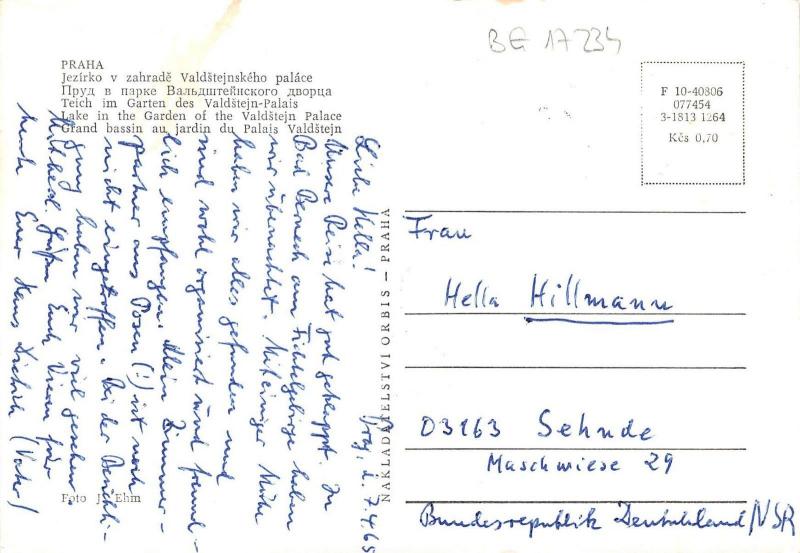 BE 17234
PRAHA
Jezírko v zahradě Valdštejnského paláce
Пруд в парке Вальдштейнского дворца
Teich im Garten des Valdštejn-Palais
Lake in the Garden of the Valdštejn Palace
Grand bassin au jardin du Palais Valdštejn
F 10-40806
077454
3-1813 1264
Kčs 0,70
Prag, d. 7.4.65
Liebe Hella!
Unsere Reise hat gut geklappt. In
Bad Berneck am Fichtelgebirge haben
wir übernachtet. Mit einiger Mühe
haben wir alles gefunden und
sind wohl organisiert und freund-
lich empfangen. Mein Zimmer-
partner aus Posen (!) ist noch
nicht eingetroffen. Bei der Besichti-
gung haben wir viel gesehen.
Grüßen Euch Vieren für
heute Euer Hans Dietrich (Vater)
Foto J. Ehm
NAKLADATELSTVÍ ORBIS — PRAHA
Frau
Hella Hillmann
03163 Sehnde
Maschwiese 29
Bundesrepublik Deutschland/NSR